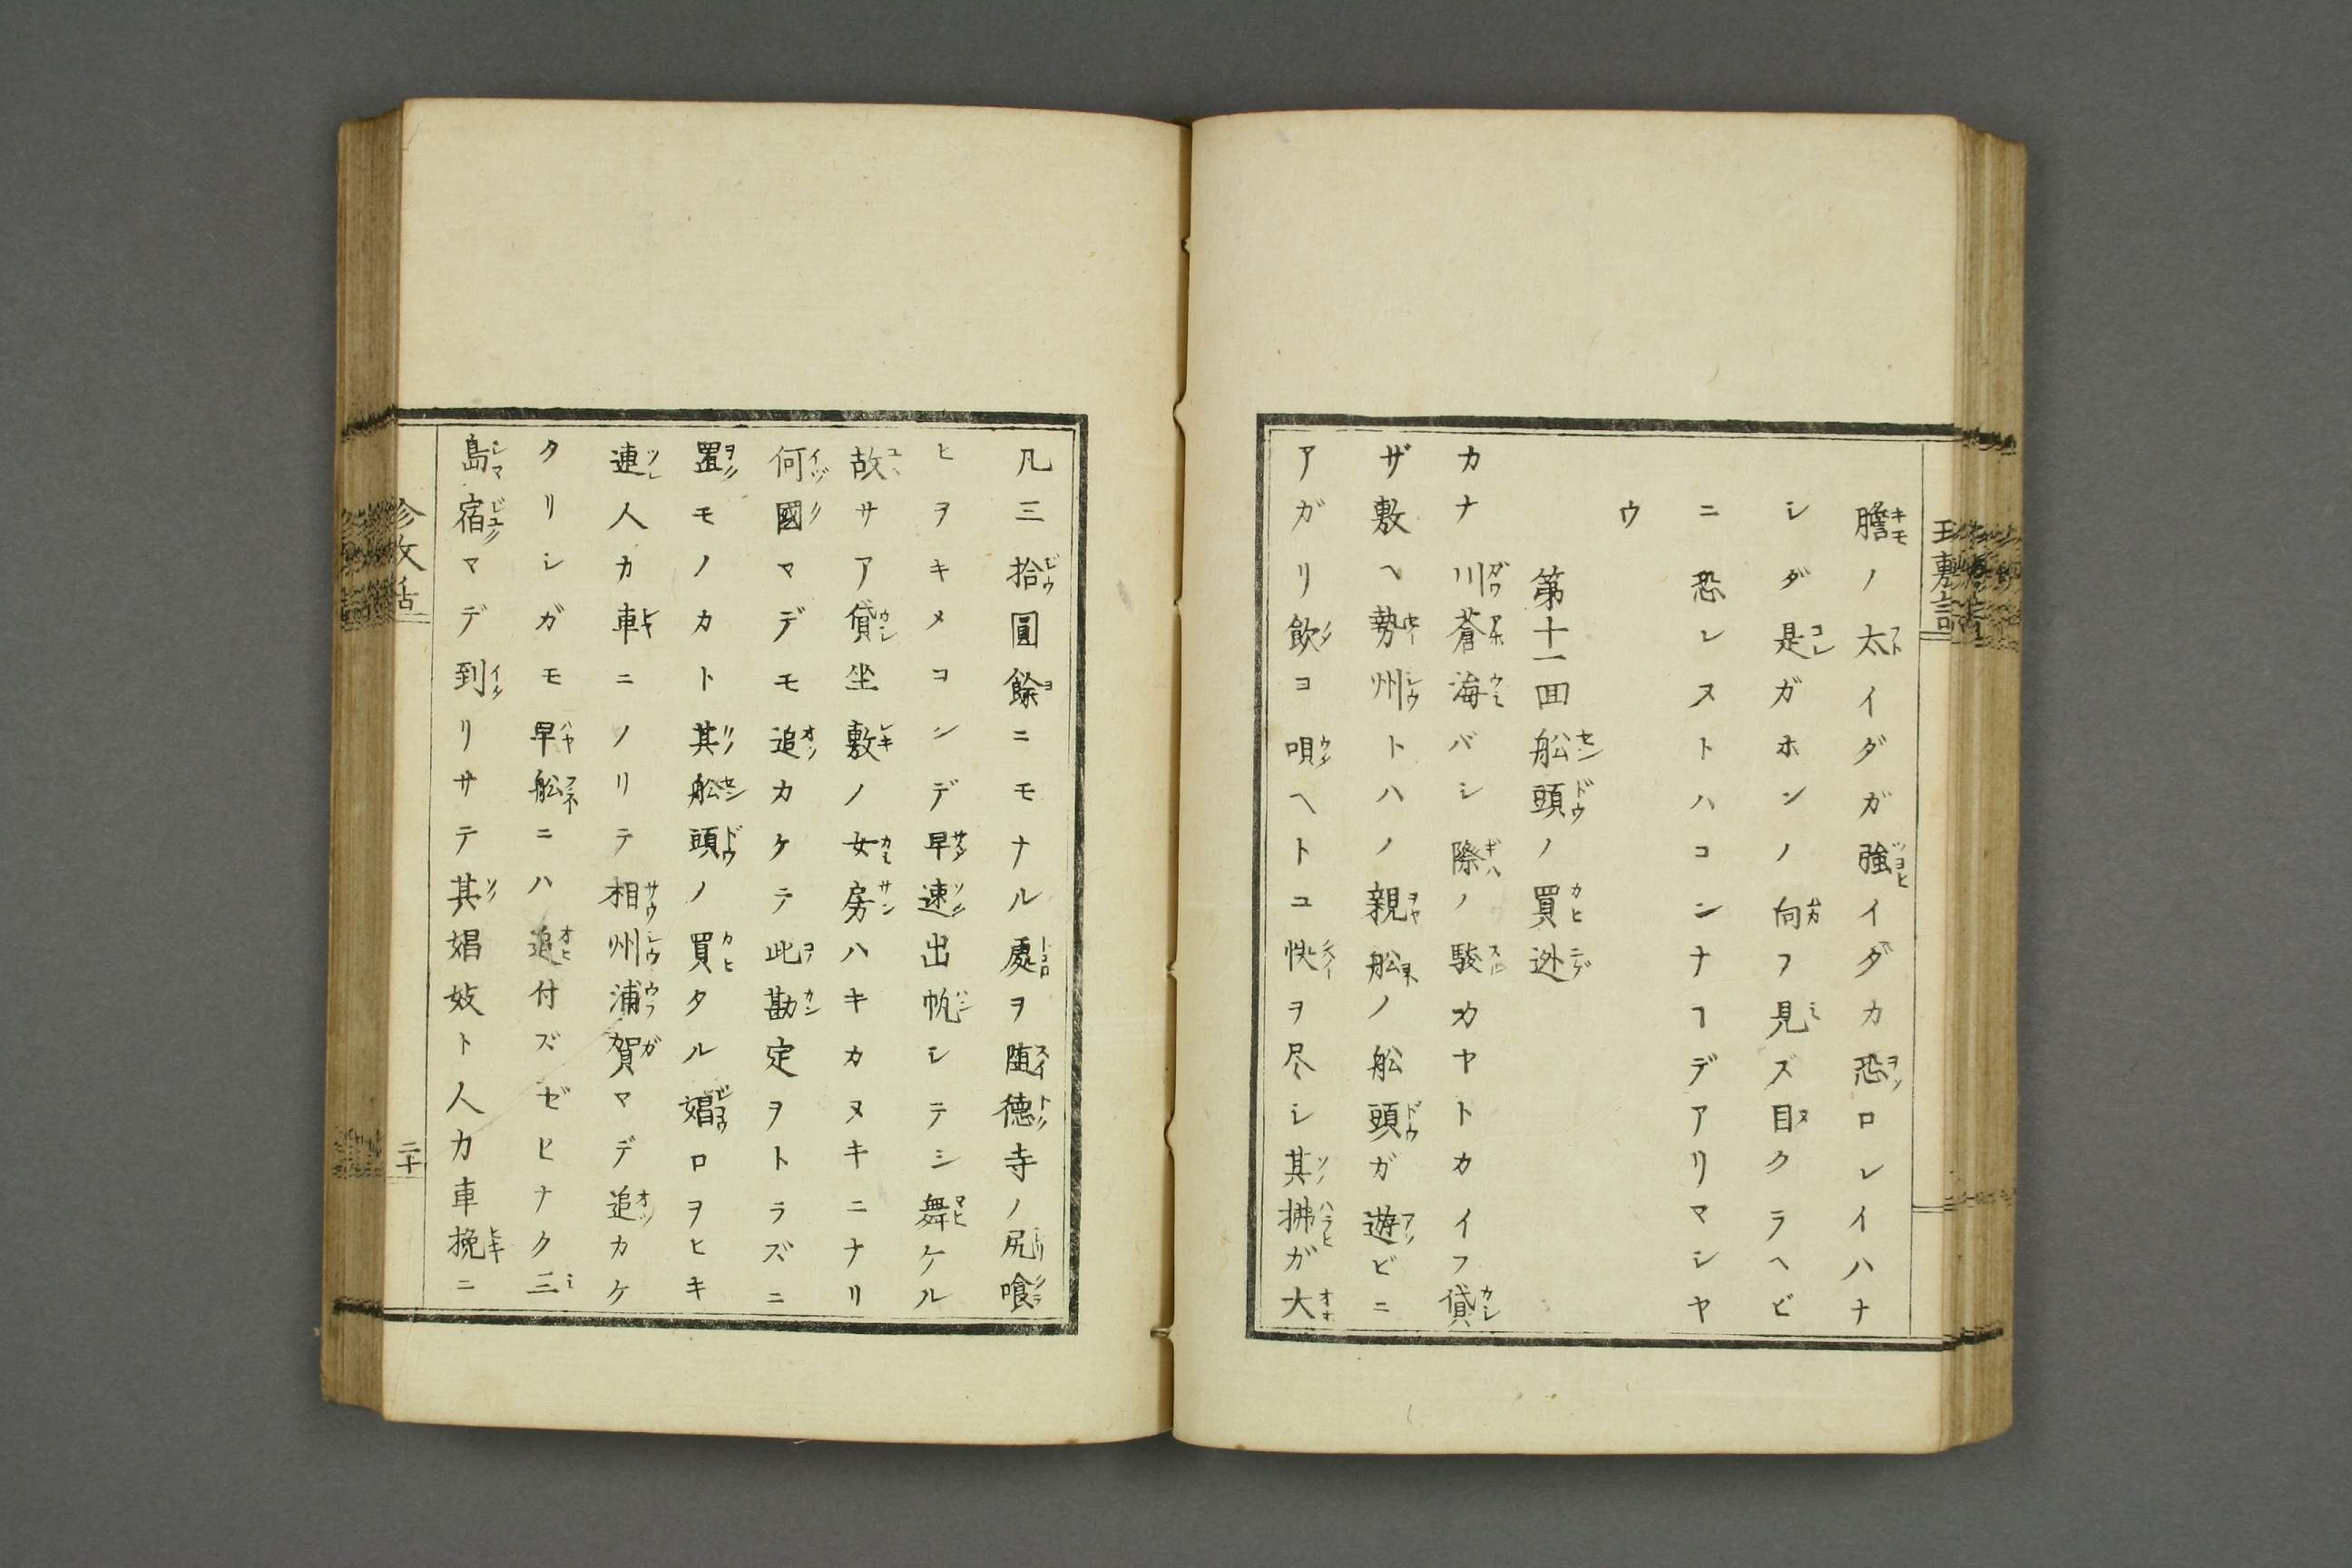 膽ノ太イダガ強イダカ恐ロレイハナ
シダ是ガホンノ向フ見ズ目クラヘビ
ニ恐レヌトハコンナヿデアリマシヤ
ウ
第十一回舩頭ノ買逃
カナ川蒼海バシ際ノ駿カヤトカイフ貸
ザ敷ヘ勢州トハノ親舩ノ舩頭ガ遊ビニ
アガリ飲ヨ唄ヘトユ快ヲ尽シ其拂ガ大
凡三拾圓餘ニモナル處ヲ随德寺ノ尻喰
ヒヲキメコンデ早速出帆シテシ舞ケル
故サア貸坐敷ノ女房ハキカヌキニナリ
何國マデモ追カケテ此勘定ヲトラズニ
置モノカト其舩頭ノ買タル娼ロヲヒキ
連人カ車ニノリテ相州浦賀マデ追カケ
タリシガモ早舩ニハ追付ズゼヒナク三
島宿マデ到リサテ其娼妓ト人力車挽ニ
二十